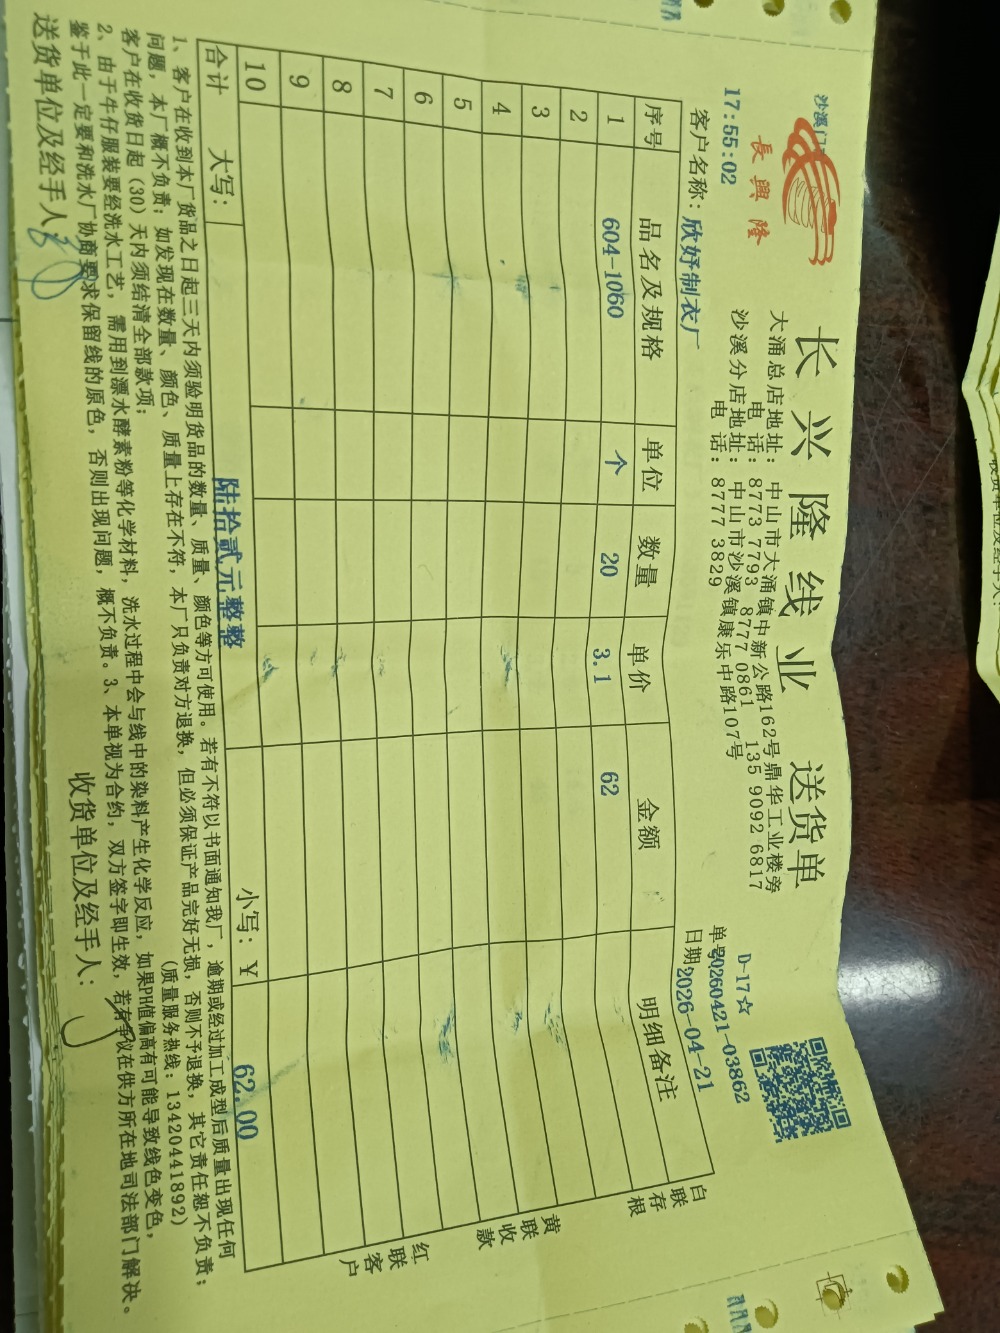 長興隆
长兴隆线业 送货单
大涌总店地址：中山市大涌镇中新公路162号鼎华工业楼旁
电 话：8773 7793 8777 0861 135 9092 6817
沙溪分店地址：中山市沙溪镇康乐中路107号
电 话：8777 3829
17:55:02
D-17☆
单号20260421-03862
客户名称：欣妤制衣厂
日期：2026-04-21
序号 品名及规格 单位 数量 单价 金额 明细备注
1 604-1060 个 20 3.1 62
2
3
4
5
6
7
8
9
10
合计 大写： 陆拾贰元整整 小写：￥ 62.00
白联存根
黄联收款
红联客户
1、客户在收到本厂货品之日起三天内须验明货品的数量、质量、颜色等方可使用。若有不符以书面通知我厂，逾期或经过加工成型后质量出现任何
问题，本厂概不负责；如发现在数量、颜色、质量上存在不符，本厂只负责对方退换，但必须保证产品完好无损，否则不予退换，其它责任恕不负责；
客户在收货日起（30）天内须结清全部款项； (质量服务热线：13420441892)
2、由于牛仔服装要经洗水工艺，需用到漂水酵素粉等化学材料，洗水过程中会与线中的染料产生化学反应，如果PH值偏高有可能导致线色变色，
鉴于此一定要和洗水厂协商要求保留线的原色，否则出现问题，概不负责。3、本单视为合约，双方签字即生效，若有争议在供方所在地司法部门解决。
送货单位及经手人： 收货单位及经手人：